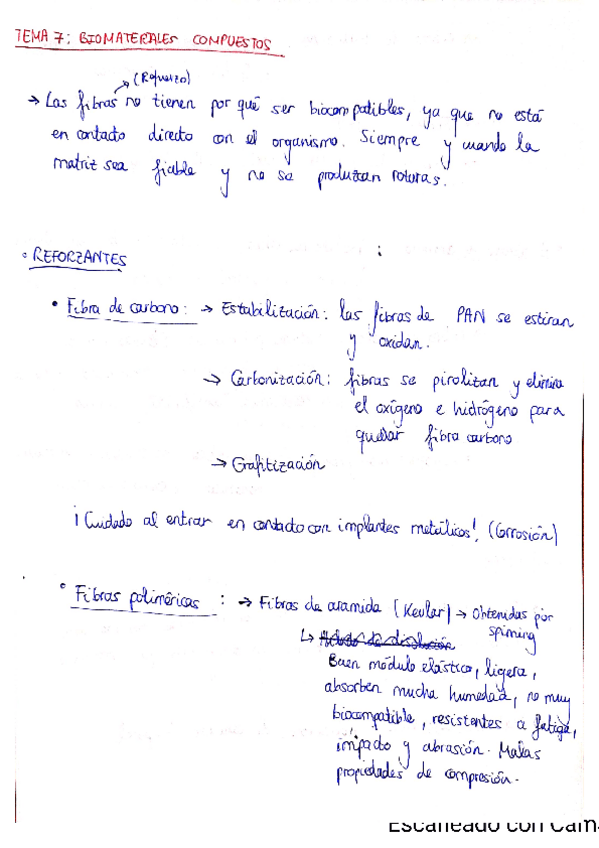 TEMA 7: BIOMATERIALES COMPUESTOS
(Refuerzo)
→ Las fibras no tienen por qué ser biocompatibles, ya que no está
en contacto directo con el organismo. Siempre y cuando la
matriz sea fiable y no se produzcan roturas.
• REFORZANTES
• Fibra de carbono: → Estabilización: las fibras de PAN se estiran
y oxidan.
→ Carbonización: fibras se pirolizan y elimina
el oxígeno e hidrógeno para
quedar fibra carbono
→ Grafitización
¡Cuidado al entrar en contacto con implantes metálicos! (Corrosión)
• Fibras poliméricas : → Fibras de aramida (Kevlar) → Obtenidas por
spinning
↳ Método de disolución
Buen módulo elástico, ligera,
absorben mucha humedad, no muy
biocompatible, resistentes a fatiga,
impacto y abrasión. Malas
propiedades de compresión.
Escaneado con Cam